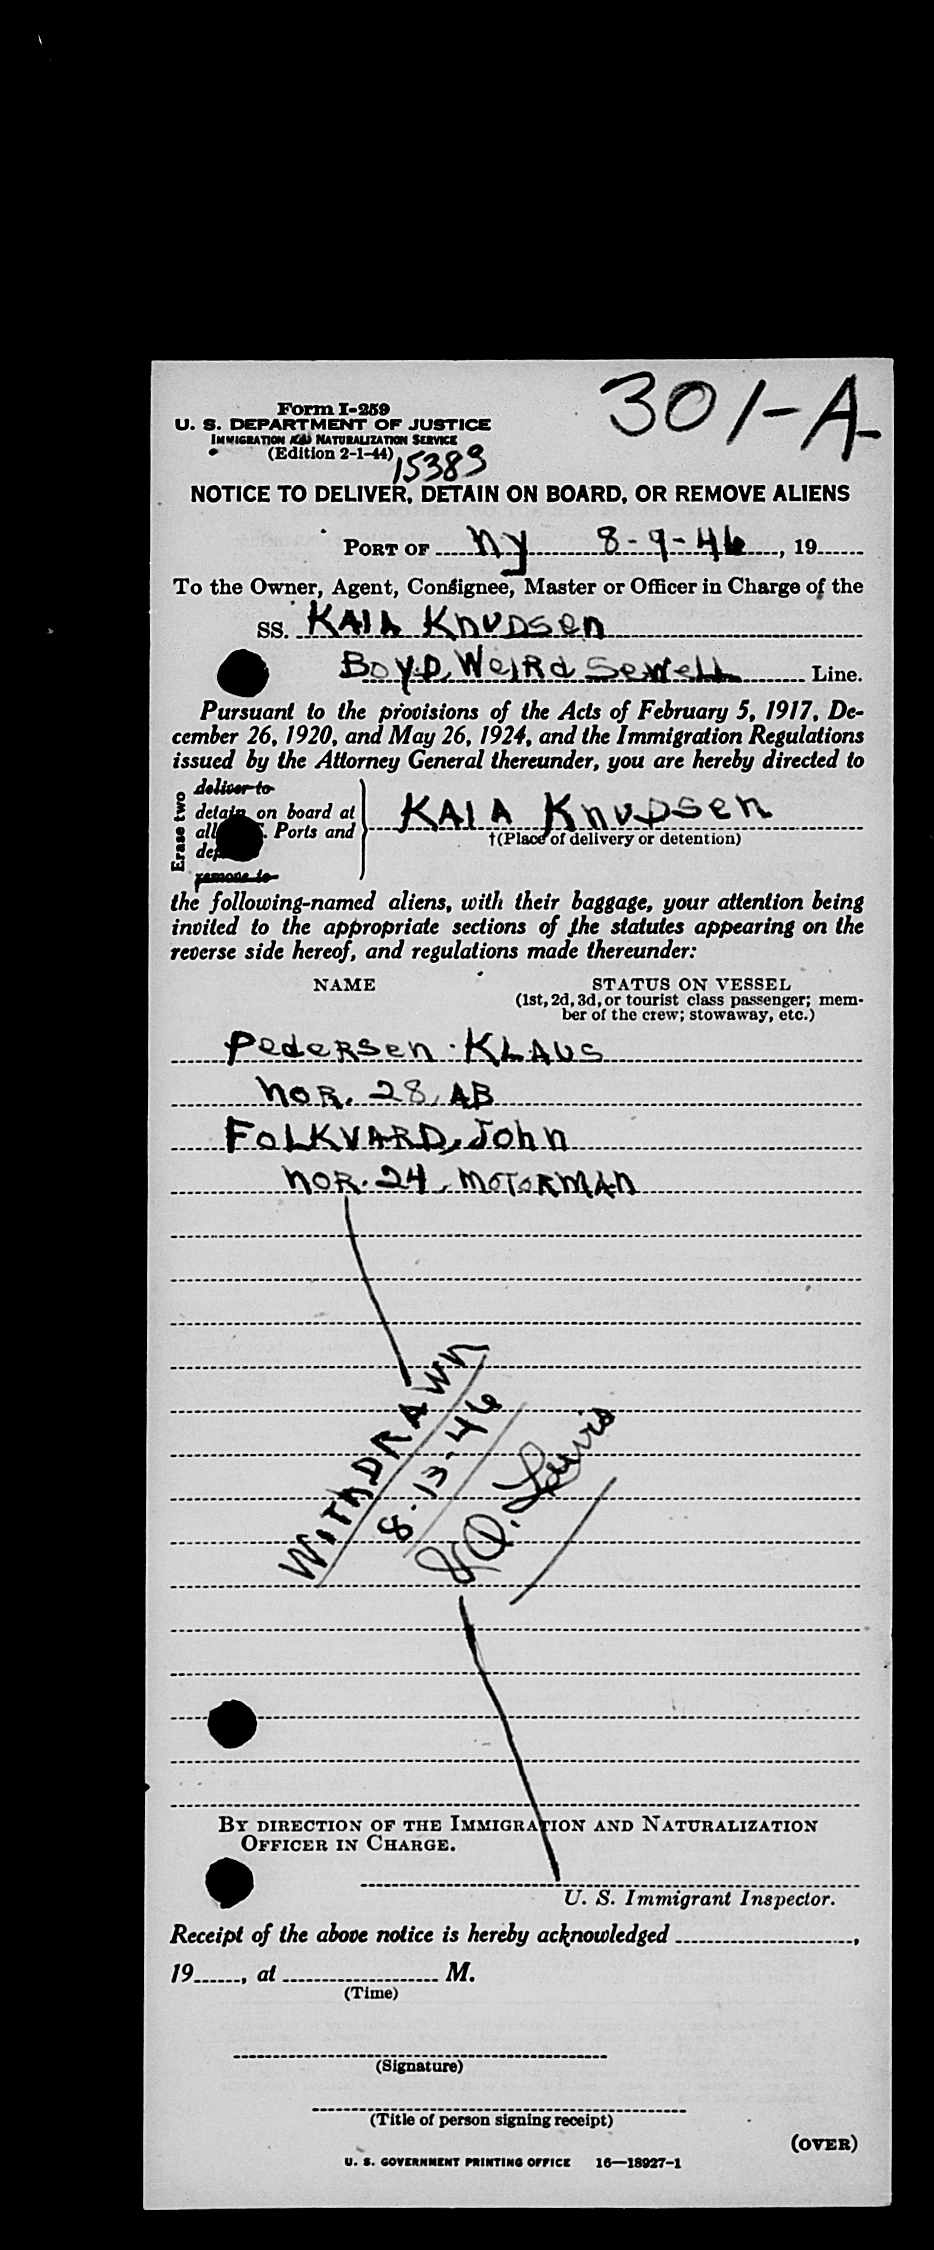 301-A
Form I-259
U. S. DEPARTMENT OF JUSTICE
IMMIGRATION AND NATURALIZATION SERVICE
(Edition 2-1-44)
15389
NOTICE TO DELIVER, DETAIN ON BOARD, OR REMOVE ALIENS
PORT OF NY 8-9-46, 19
To the Owner, Agent, Consignee, Master or Officer in Charge of the
SS. KAIA KNUDSEN
BOYD, WEIRD SEWELL Line.
Pursuant to the provisions of the Acts of February 5, 1917, De-
cember 26, 1920, and May 26, 1924, and the Immigration Regulations
issued by the Attorney General thereunder, you are hereby directed to
Erase two
deliver to
detain on board at
all Ports and
remove to
KAIA KNUDSEN
†(Place of delivery or detention)
the following-named aliens, with their baggage, your attention being
invited to the appropriate sections of the statutes appearing on the
reverse side hereof, and regulations made thereunder:
NAME STATUS ON VESSEL
(1st, 2d, 3d, or tourist class passenger; mem-
ber of the crew; stowaway, etc.)
PEDERSEN · KLAUS
NOR. 28, AB
FOLKVARD, John
NOR. 24, MOTORMAN
WITHDRAWN
8-13-46
Lewis
BY DIRECTION OF THE IMMIGRATION AND NATURALIZATION
OFFICER IN CHARGE.
U. S. Immigrant Inspector.
Receipt of the above notice is hereby acknowledged ,
19 , at M.
(Time)
(Signature)
(Title of person signing receipt)
(OVER)
U. S. GOVERNMENT PRINTING OFFICE 16—18927-1